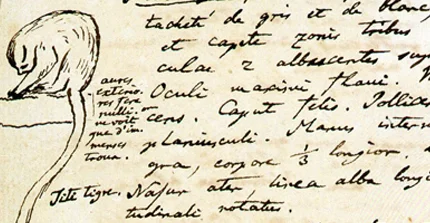 tacheté de gris et de blanc
et capite zonis tribus
culae 2 albescentes sup
Oculi maximi flavi.
cens. Caput felis. Pollices
planiusculi. Manus inter
gra, corpore 1/3 longior.
Titi tigre. Nasus ater, linea alba longi
tudinali notatus.
aures
exterio
res fere
nullae. on
ne voit
que d'im
menses
trous.